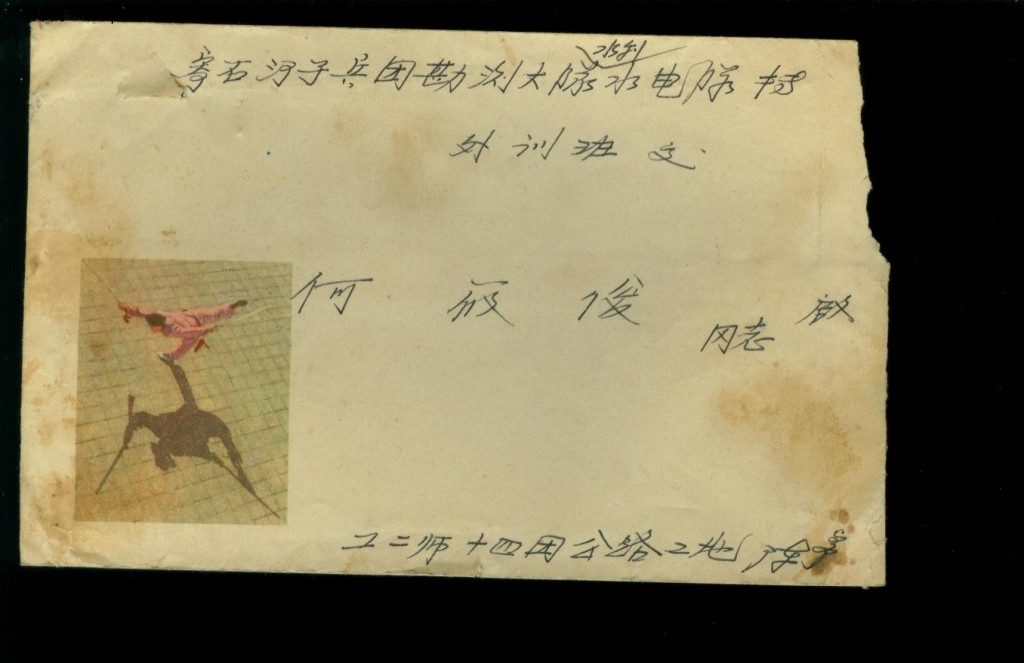 水利
寄石河子兵团勘测大队水电队
外训班交
何俊
同志 启
工二师十四团公路工地